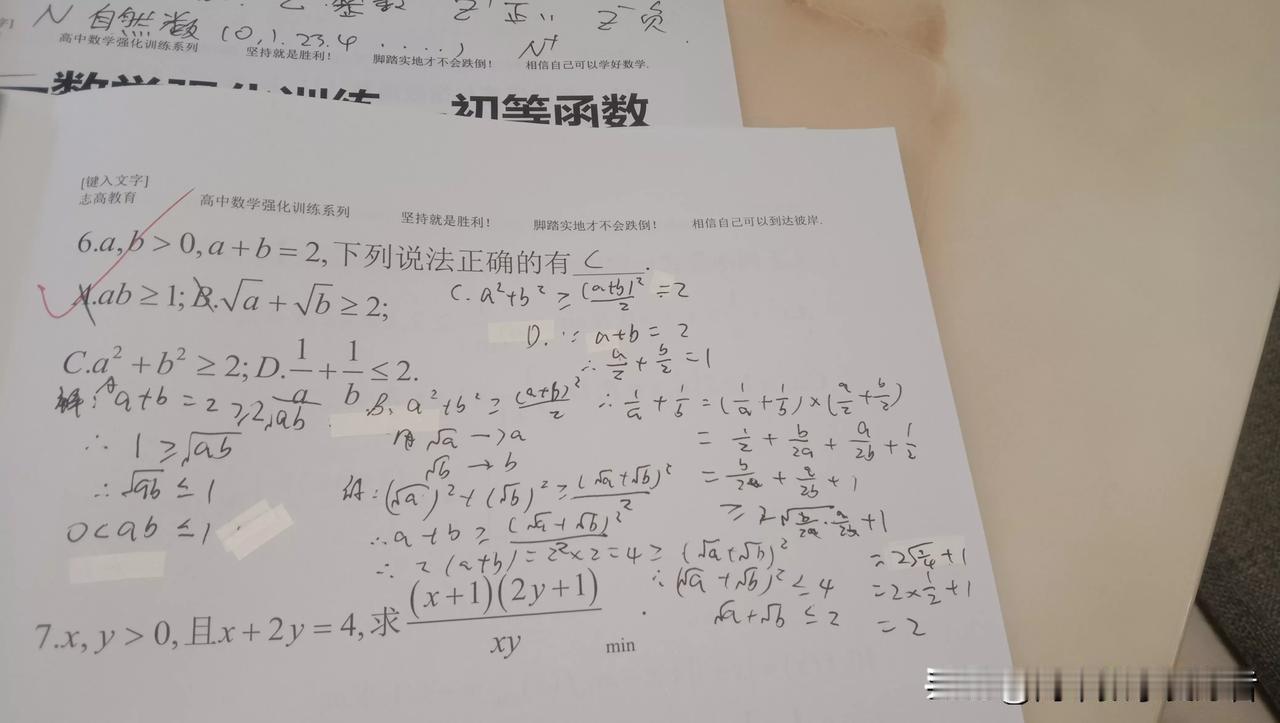 N 自然数(0,1.2 3.4 ....) N⁺
高中数学强化训练系列 坚持就是胜利! 脚踏实地才不会跌倒! 相信自己可以学好数学.
初等函数
[键入文字]
志高教育 高中数学强化训练系列 坚持就是胜利! 脚踏实地才不会跌倒! 相信自己可以到达彼岸.
6.a,b > 0,a + b = 2,下列说法正确的有 C .
A.ab ≥ 1; B.√a + √b ≥ 2;
C.a² + b² ≥ 2; D.1/a + 1/b ≤ 2.
解: A a+b = 2 ≥ 2√ab
∴ 1 ≥ √ab
∴ √ab ≤ 1
0 < ab ≤ 1
B. a²+b² ≥ (a+b)²/2
用 √a → a
√b → b
(√a)² + (√b)² ≥ (√a+√b)²/2
∴ a+b ≥ (√a+√b)²/2
∴ 2(a+b) = 2×2 = 4 ≥ (√a+√b)²
∴ (√a+√b)² ≤ 4
√a+√b ≤ 2
C. a²+b² ≥ (a+b)²/2 = 2
D. ∵ a+b = 2
∴ a/2 + b/2 = 1
∴ 1/a + 1/b = (1/a + 1/b) × (a/2 + b/2)
= 1/2 + b/2a + a/2b + 1/2
= b/2a + a/2b + 1
≥ 2√(b/2a · a/2b) + 1
= 2√¼ + 1
= 2×½ + 1
= 2
7.x, y > 0,且x + 2y = 4,求 (x+1)(2y+1)/xy min .